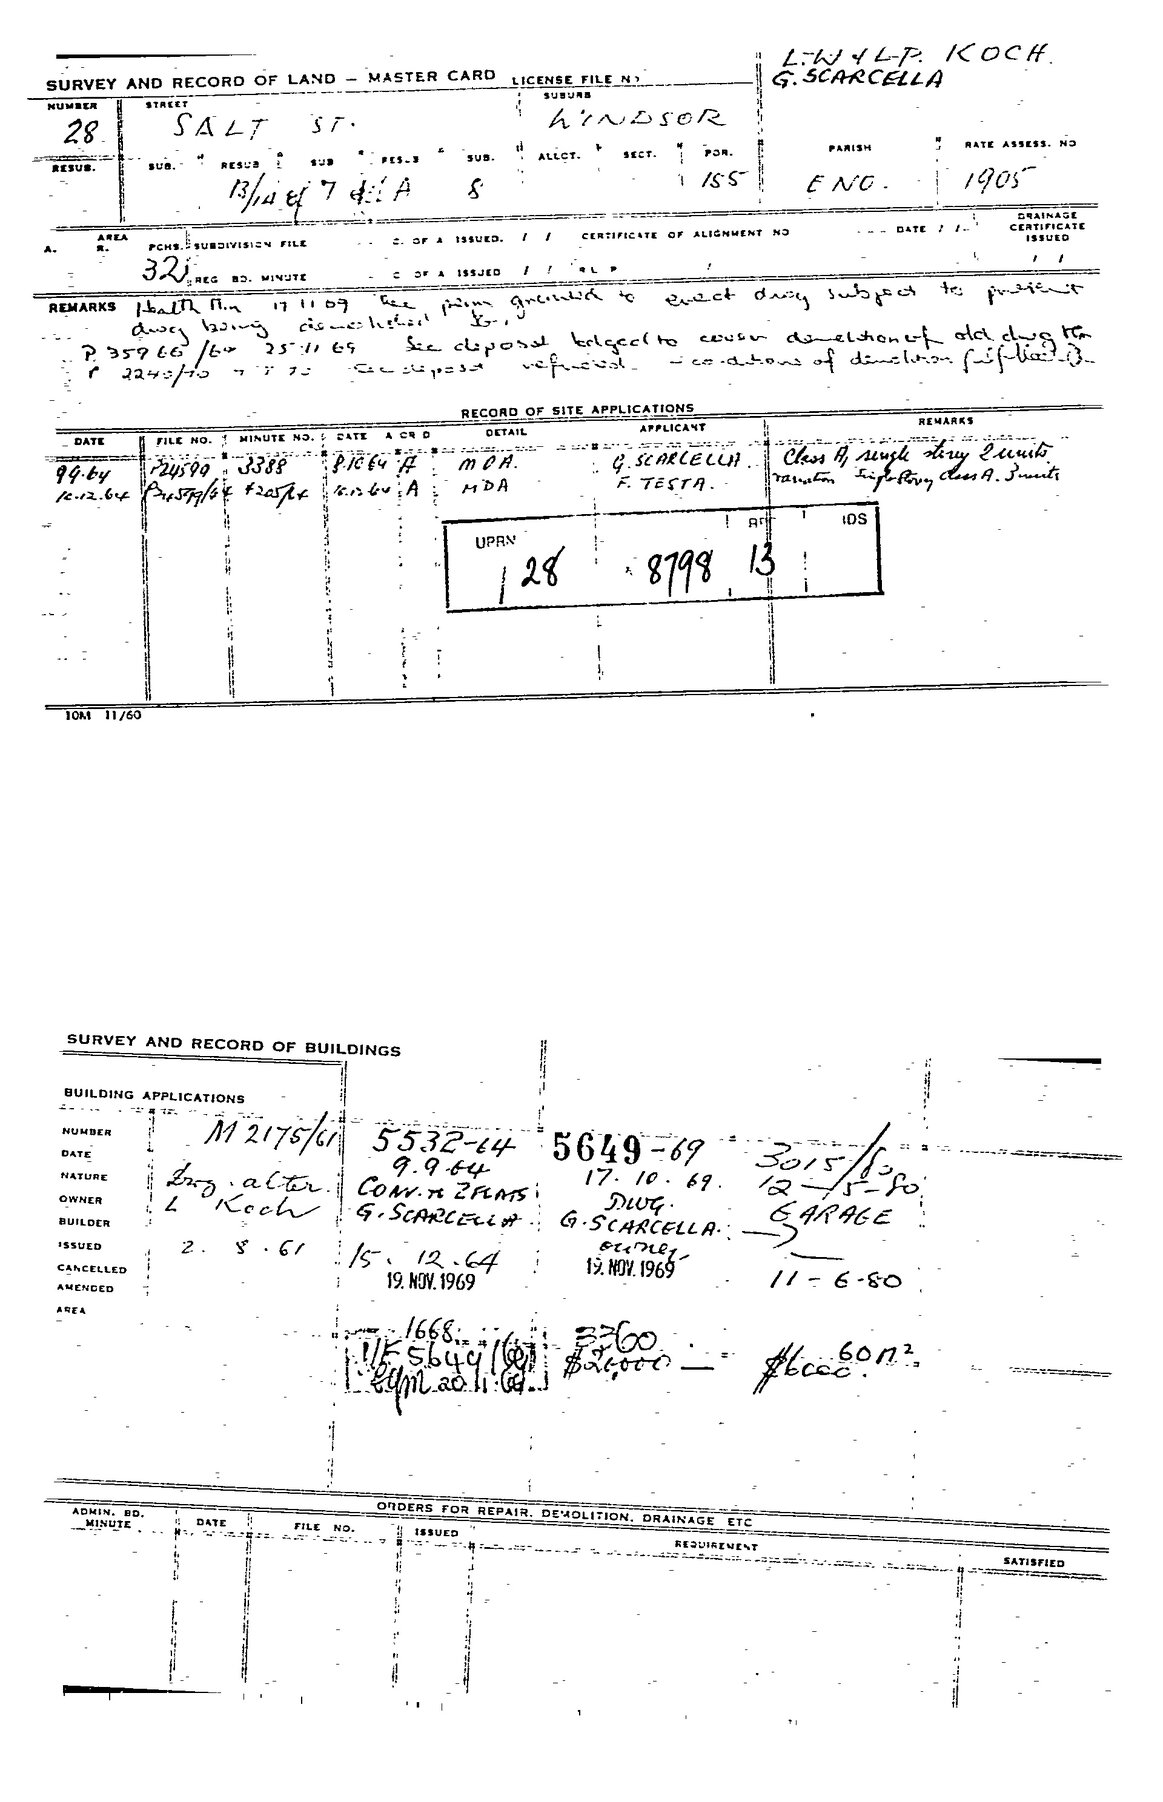 L.W & L.P. KOCH.
SURVEY AND RECORD OF LAND – MASTER CARD LICENSE FILE No G. SCARCELLA
NUMBER STREET SUBURB
28 SALT ST. WINDSOR
RESUB. SUB. RESUB SUB RES.B SUB. ALLCT. SECT. POR. PARISH RATE ASSESS. NO
13/14 of 7 A 8 155 ENO. 1905
AREA DRAINAGE
A. R. PCHS. SUBDIVISION FILE C. OF A ISSUED. / / CERTIFICATE OF ALIGNMENT NO DATE / / CERTIFICATE
ISSUED
32 REG BD. MINUTE C OF A ISSUED / / R L P / / /
REMARKS Health Min 17 11 69 See perm granted to erect dwg subject to present
dwg being demolished
P 35966/69 25 11 69 See deposit lodged to cover demolition of old dwg
See deposit refunded – conditions of demolition fulfilled
RECORD OF SITE APPLICATIONS
DATE FILE NO. MINUTE NO. DATE A OR D DETAIL APPLICANT REMARKS
9.9.64 P24599 3388 8.10.64 A MDA. G. SCARCELLA. Class A, single storey 2 units
10.12.64 P24599/64 4205/64 10.12.64 A MDA F. TESTA. variation Single Storey Class A. 3 units
UPRN IDS
28 8798 13
10M 11/60
SURVEY AND RECORD OF BUILDINGS
BUILDING APPLICATIONS
NUMBER M2175/61 5532-64 5649-69 3015/80
DATE 9.9.64 17.10.69. 12-5-80
NATURE Dwg. alter. CONV. to 2 FLATS DWG. GARAGE
OWNER L Koch G. SCARCELLA G. SCARCELLA.
BUILDER owner.
ISSUED 2.8.61 15.12.64 19.NOV.1969 11-6-80
CANCELLED 19.NOV.1969
AMENDED
AREA
1668. 3360 60 m²
5649/69 $20,000 — $6000.
20.11.69
ORDERS FOR REPAIR. DEMOLITION. DRAINAGE ETC
ADMIN. BD. MINUTE DATE FILE NO. ISSUED REQUIREMENT SATISFIED